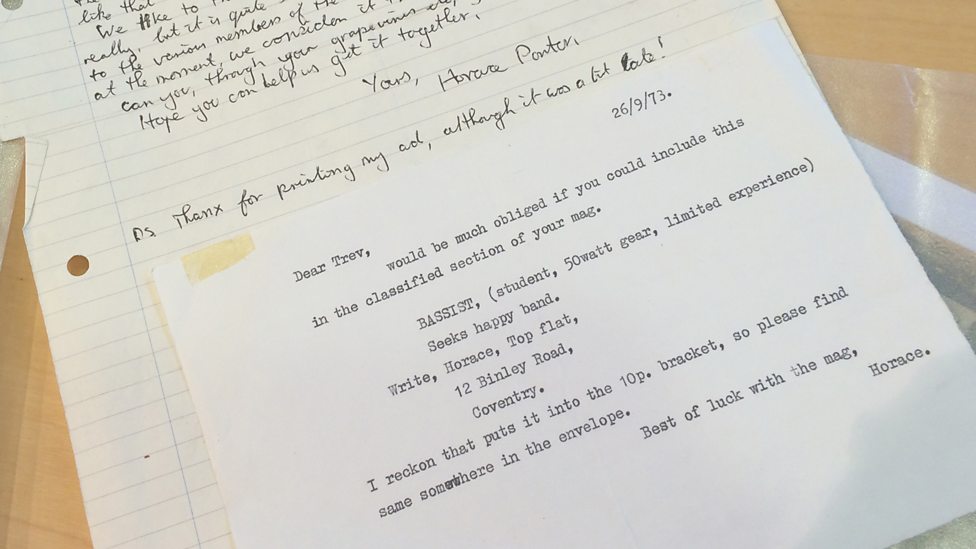 like that
We like to th
really, but it is quite
to the various members of the
at the moment, we consider it
can you, through your grapevines etc,
Hope you can help us get it together.
Yours, Horace Panter.
PS Thanx for printing my ad, although it was a bit late!
26/9/73.
Dear Trev,
would be much obliged if you could include this
in the classified section of your mag.
BASSIST, (student, 50watt gear, limited experience)
Seeks happy band.
Write, Horace, Top flat,
12 Binley Road,
Coventry.
I reckon that puts it into the 10p. bracket, so please find
same somewhere in the envelope.
Best of luck with the mag,
Horace.